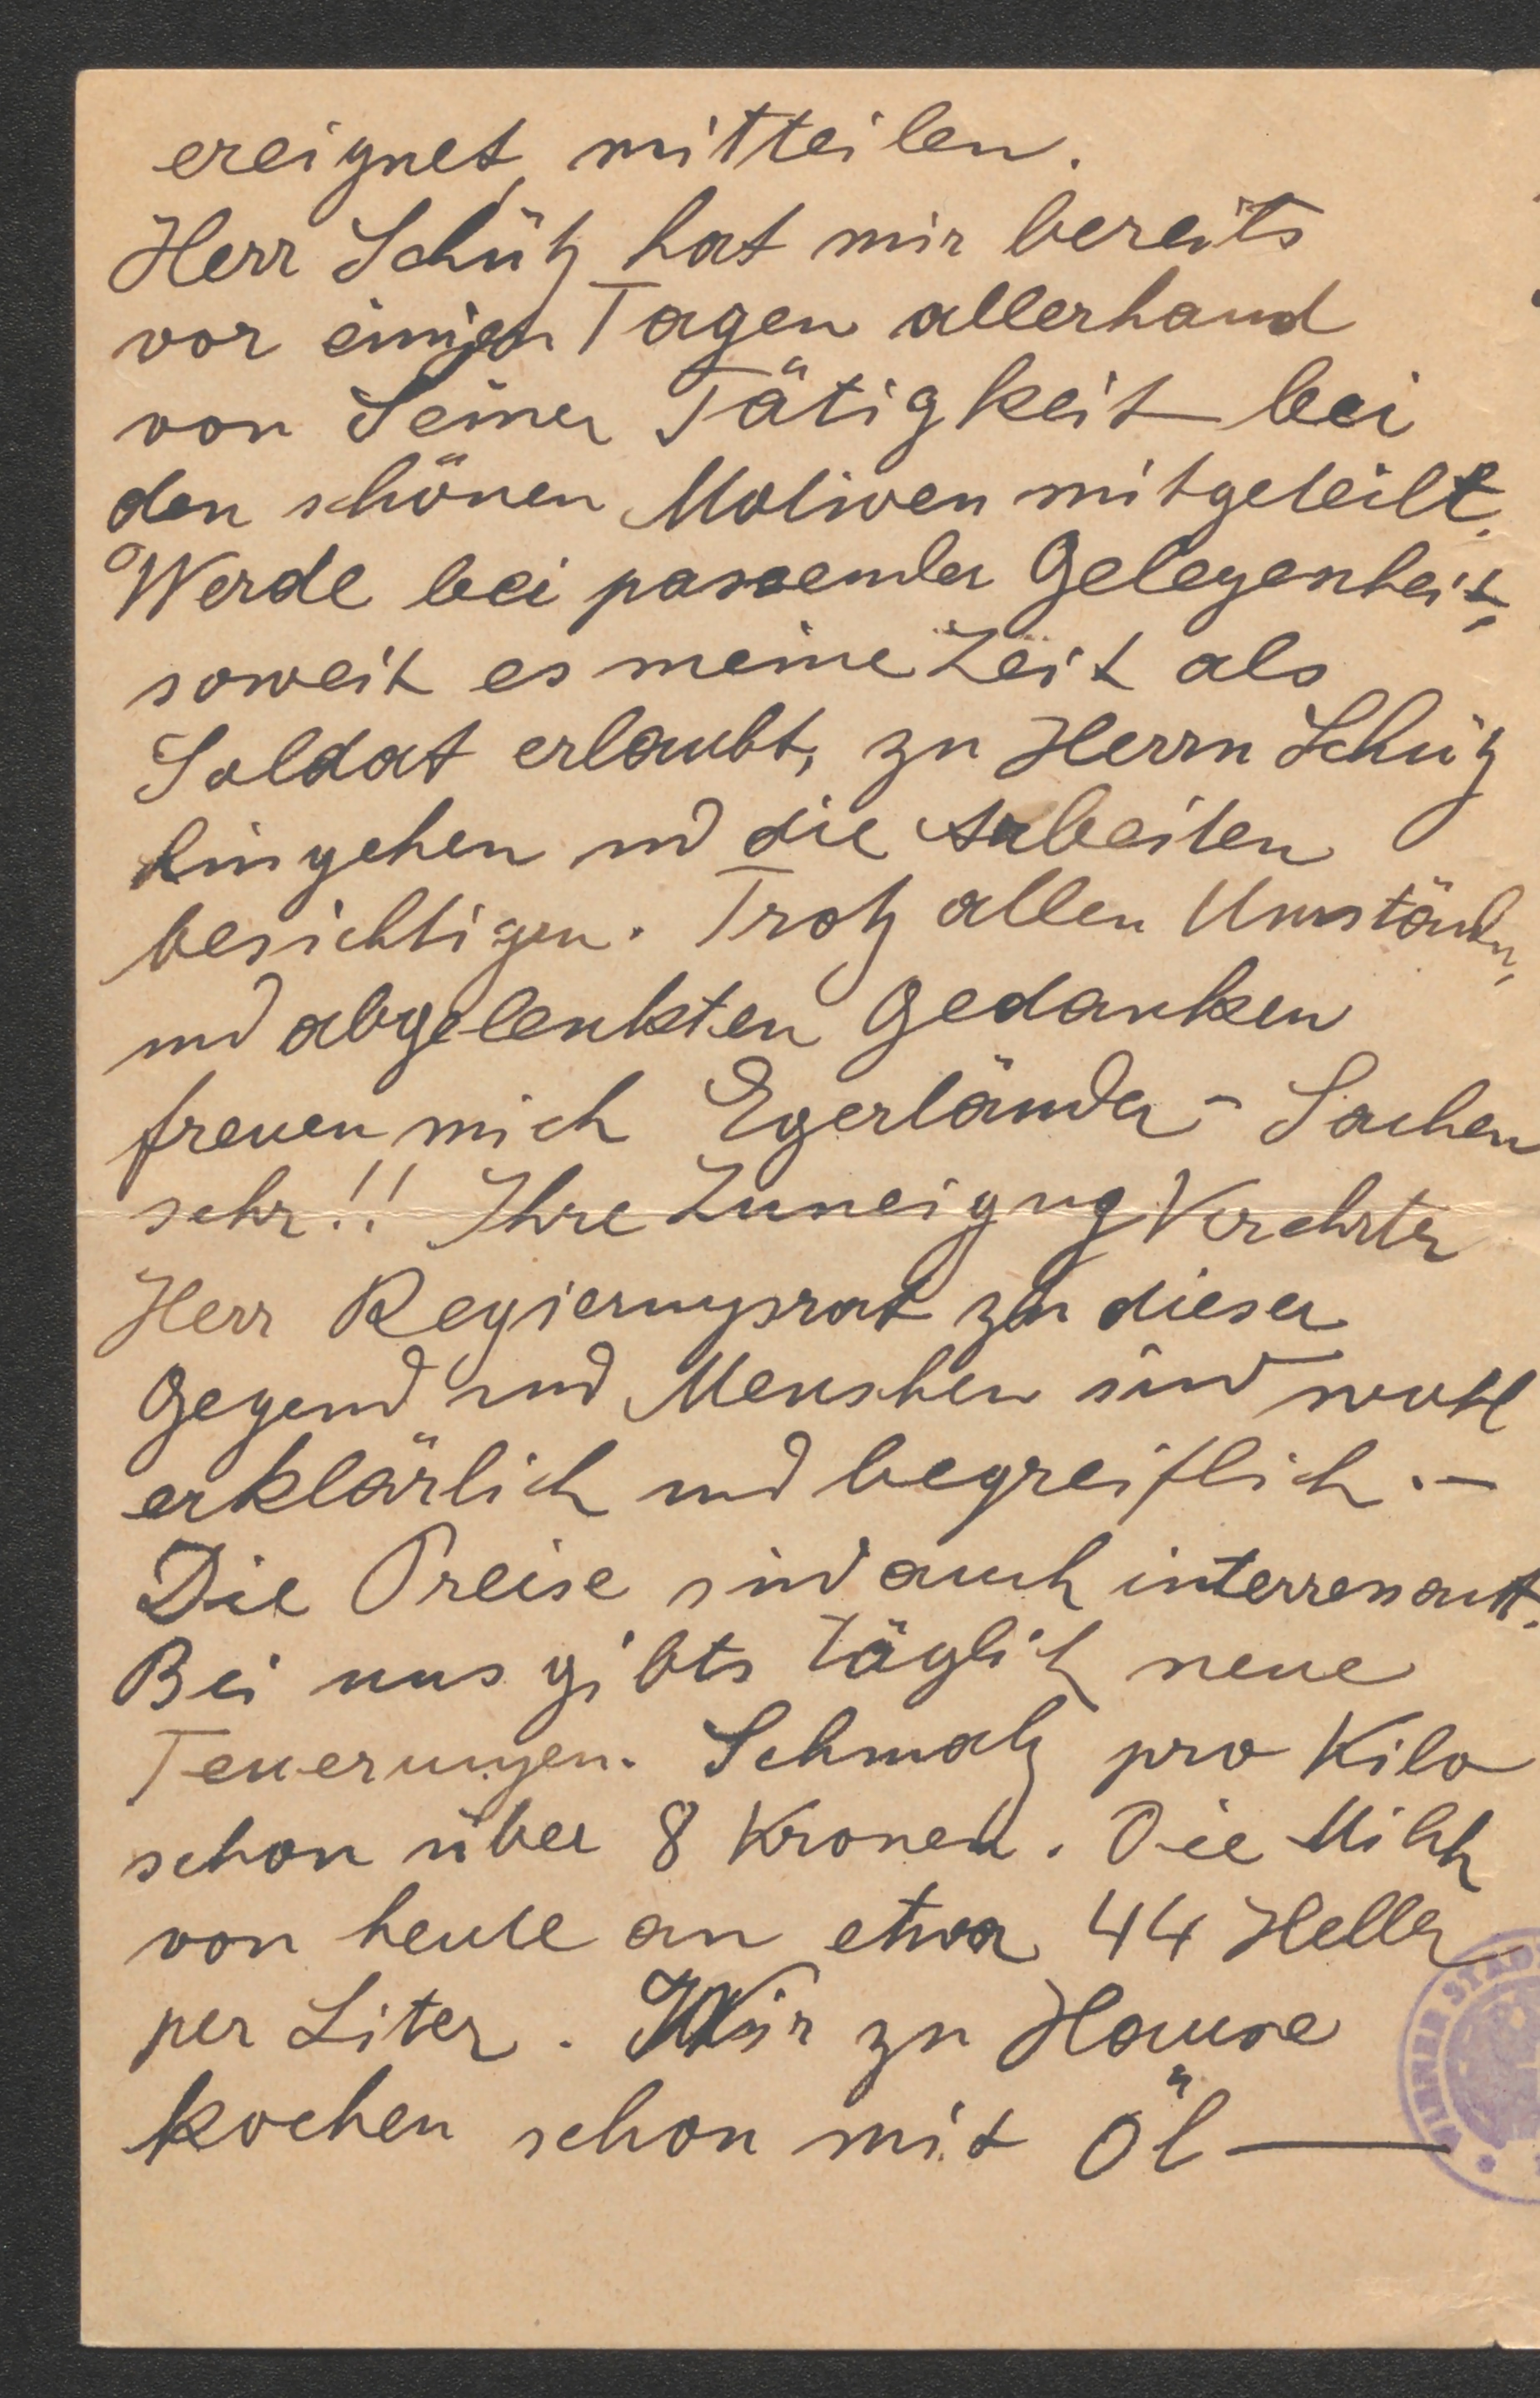 ereignet, mitteilen.
Herr Schütz hat mir bereits
vor einigen Tagen allerhand
von Seiner Tätigkeit bei
den schönen Motiven mitgeteilt.
Werde bei passender Gelegenheit,
soweit es meine Zeit als
Soldat erlaubt, zu Herrn Schütz
hingehen und die Arbeiten
besichtigen. Trotz allen Umständen,
und abgelenkten Gedanken
freuen mich Egerländer-Sachen
sehr!! Ihre Zuneigug Verehrter
Herr Regierungsrat zu dieser
Gegend und Menschen sind wohl
erklärlich und begreiflich.-
Die Preise sind auch interresantt.
Bei uns gibts täglich neue
Teuerungen. Schmalz pro Kilo
schon über 8 Kronen. Die Milch
von heute an etwa 44 Heller
per Liter. Wir zu Hause
kochen schon mit Öl —